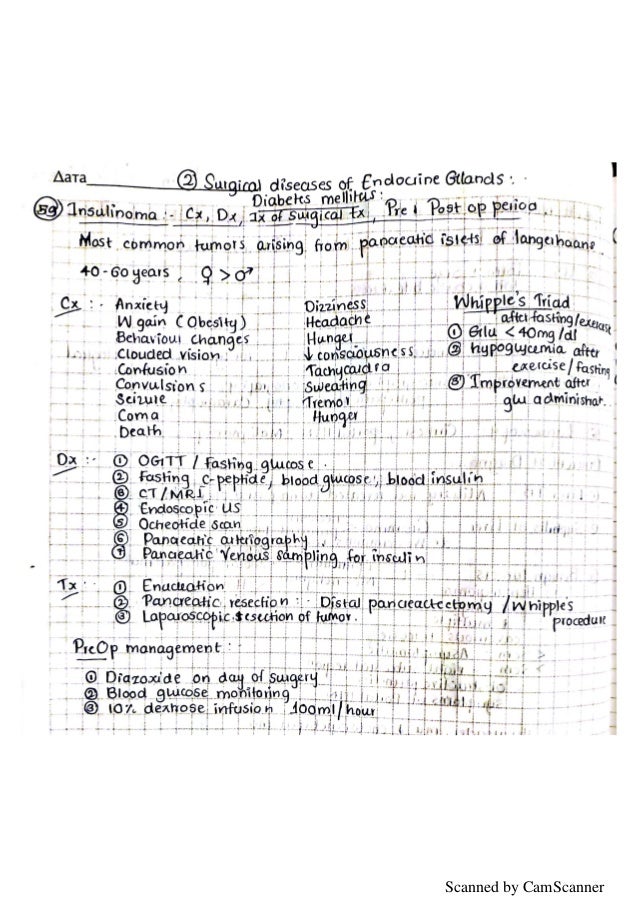 Дата
② Surgical diseases of Endocrine Glands :
Diabetes mellitus :
59 Insulinoma :- Cx, Dx, Ix of Surgical Tx, Pre & Post op period
Most common tumors arising from pancreatic islets of langerhaane.
40-60 years, ♀ > ♂
Cx :- Anxiety
W gain (Obesity)
Behaviour changes
Clouded vision
Confusion
Convulsions
Seizure
Coma
Death
Dizziness
Headache
Hunger
↓ consciousness
Tachycardia
Sweating
Tremor
Hunger
Whipple's Triad
after fasting/exercise
① Glu < 40mg/dl
② hypoglycemia after
exercise / fasting
③ Improvement after
glu administrat.
Dx :- ① OGTT / fasting glucose.
② Fasting c-peptide, blood glucose, blood insulin
③ CT/MRI
④ Endoscopic US
⑤ Ocheotide scan
⑥ Pancreatic arteriography
⑦ Pancreatic Venous sampling for insulin
Tx :- ① Enucleation
② Pancreatic resection :- Distal pancreactectomy / Whipple's
procedure
③ Laparoscopic resection of tumor.
PreOp management :-
① Diazoxide on day of surgery
② Blood glucose monitoring
③ 10% dextrose infusion 100ml/hour
Scanned by CamScanner